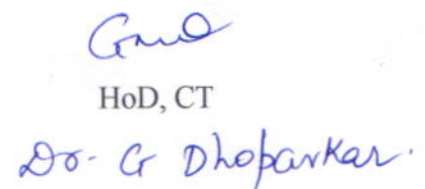 HoD, CT
Dr. G Dhoparkar.